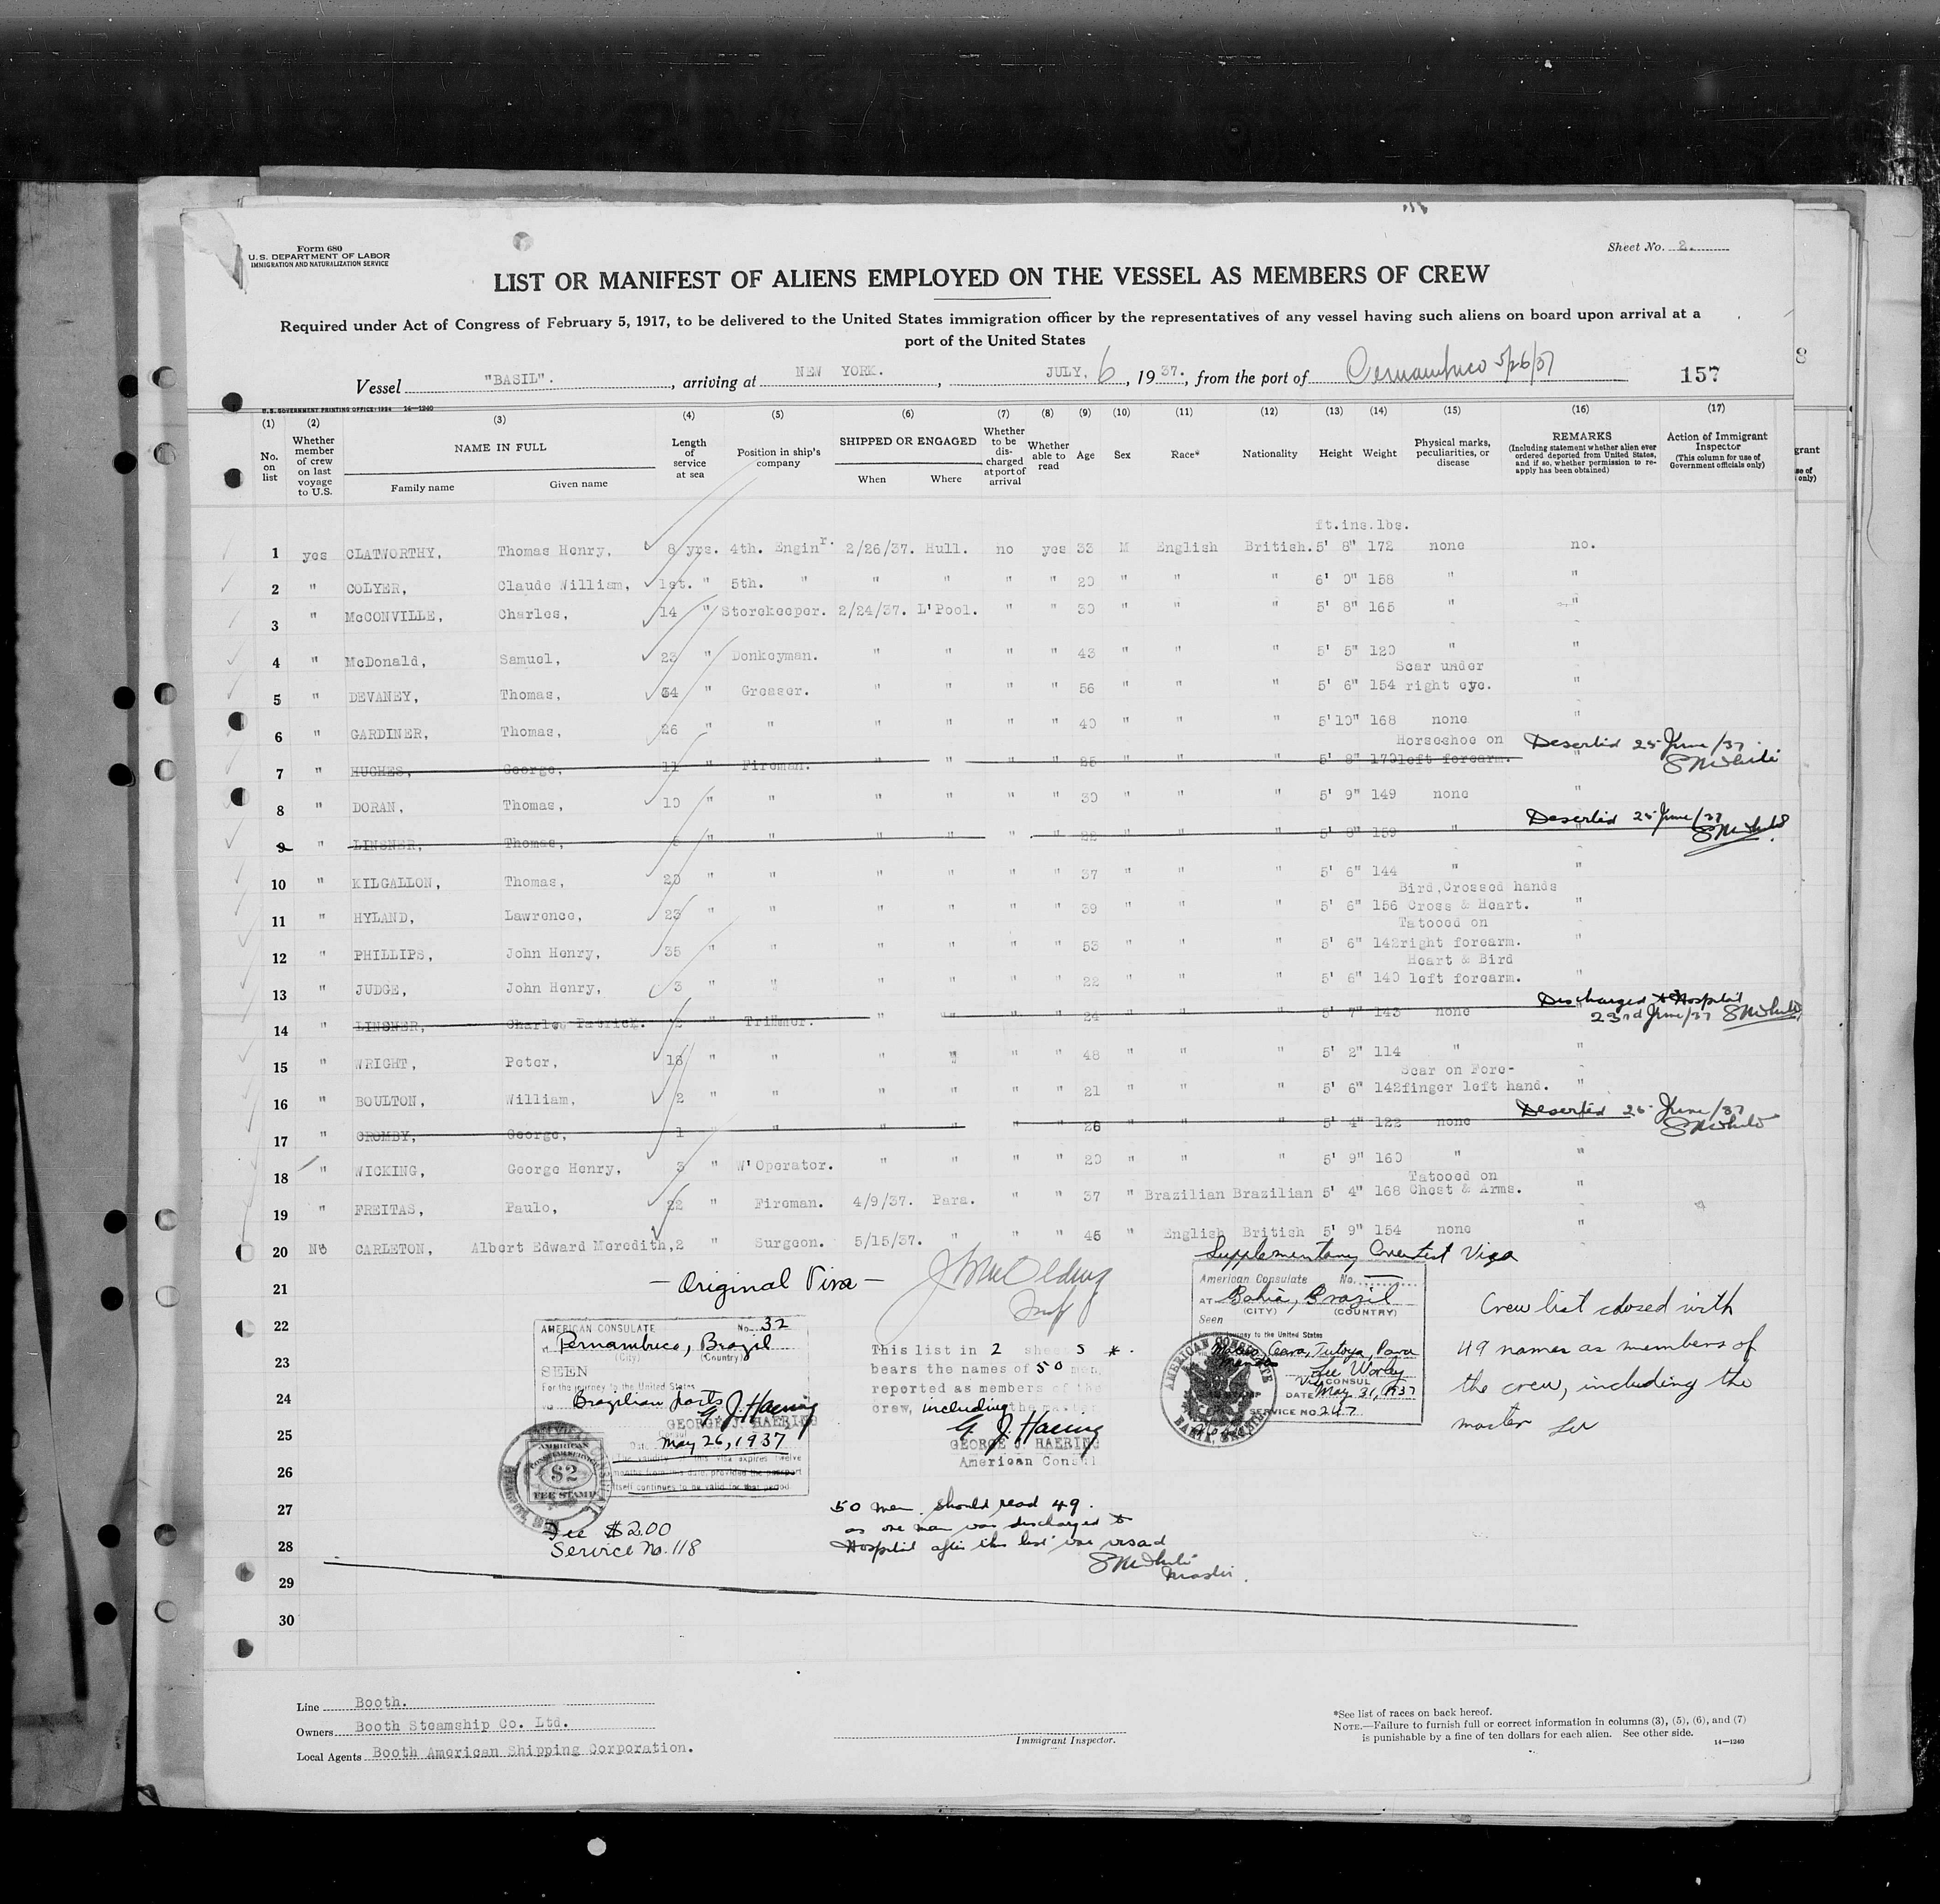 Form 680
U.S. DEPARTMENT OF LABOR
IMMIGRATION AND NATURALIZATION SERVICE
Sheet No. 2.
LIST OR MANIFEST OF ALIENS EMPLOYED ON THE VESSEL AS MEMBERS OF CREW
Required under Act of Congress of February 5, 1917, to be delivered to the United States immigration officer by the representatives of any vessel having such aliens on board upon arrival at a
port of the United States
Vessel "BASIL". , arriving at NEW YORK. , JULY, 6 , 19 37. , from the port of Pernambuco 5/26/37 157
U.S. GOVERNMENT PRINTING OFFICE: 1934 14—1240
(1) (2) (3) (4) (5) (6) (7) (8) (9) (10) (11) (12) (13) (14) (15) (16) (17)
No. on list
Whether member of crew on last voyage to U.S.
NAME IN FULL
Family name Given name
Length of service at sea
Position in ship's company
SHIPPED OR ENGAGED
When Where
Whether to be discharged at port of arrival
Whether able to read
Age Sex Race* Nationality Height Weight
Physical marks, peculiarities, or disease
REMARKS
(Including statement whether alien ever ordered deported from United States, and if so, whether permission to reapply has been obtained)
Action of Immigrant Inspector
(This column for use of Government officials only)
ft.ins.lbs.
1 yes CLATWORTHY, Thomas Henry, 8 yrs. 4th. Enginr. 2/26/37. Hull. no yes 33 M English British. 5' 8" 172 none no.
2 " COLYER, Claude William, 1st. " 5th. " " " " " 20 " " " 6' 0" 158 " "
3 " McCONVILLE, Charles, 14 " Storekeeper. 2/24/37. L'Pool. " " 30 " " " 5' 8" 165 " "
4 " McDonald, Samuel, 23 " Donkeyman. " " " " 43 " " " 5' 5" 120 "
5 " DEVANEY, Thomas, 34 " Greaser. " " " " 56 " " " 5' 6" 154 Scar under right eye. "
6 " GARDINER, Thomas, 26 " " " " " " 40 " " " 5'10" 168 none "
7 " HUGHES, George, 11 " Fireman. " " 5' 8" 170 Horseshoe on left forearm. Deserted 25 June/37
8 " DORAN, Thomas, 10 " " " " " " 30 " " " 5' 9" 149 none "
9 " LINSNER, Thomas, " " " " " 22 " " 5' 8" 159 " Deserted 25 June/37
10 " KILGALLON, Thomas, 20 " " " " " " 37 " " " 5' 6" 144 " "
11 " HYLAND, Lawrence, 23 " " " " " " 39 " " " 5' 6" 156 Bird, Crossed hands Cross & Heart. "
12 " PHILLIPS, John Henry, 35 " " " " " " 53 " " " 5' 6" 142 Tatooed on right forearm. "
13 " JUDGE, John Henry, 3 " " " " " " 22 " " " 5' 6" 140 Heart & Bird left forearm. "
14 " LINSNER, Charles Patrick. 2 " Trimmer. " " " " 24 " " " 5' 7" 143 none Discharged to Hospital 23rd June/37
15 " WRIGHT, Peter, 18 " " " " " " 48 " " " 5' 2" 114 " "
16 " BOULTON, William, 2 " " " " " " 21 " " " 5' 6" 142 Scar on Fore-finger left hand. "
17 " CROMBY, George, 1 " " " " " " 26 " " " 5' 4" 122 none Deserted 25 June/37
18 " WICKING, George Henry, 3 " W'Operator. " " " " 20 " " " 5' 9" 160 " "
19 " FREITAS, Paulo, 22 " Fireman. 4/9/37. Para. " " 37 " Brazilian Brazilian 5' 4" 168 Tatooed on Chest & Arms. "
20 No CARLETON, Albert Edward Meredith, 2 " Surgeon. 5/15/37. " " " 45 " English British 5' 9" 154 none "
21
22
23
24
25
26
27
28
29
30
— Original Visa —
AMERICAN CONSULATE No. 32
Pernambuco, Brazil
(City) (Country)
SEEN
For the journey to the United States
via Brazilian ports
G. J. Haering
GEORGE J. HAERING
Consul
Date May 26, 1937
The validity of this visa expires twelve
months from this date, provided the passport
itself continues to be valid for that period.
AMERICAN
$2
FEE STAMP
Fee $2.00
Service No. 118
This list in 2 sheets
bears the names of 50 men,
reported as members of the
crew, including the master
G. J. Haering
GEORGE J. HAERING
American Consul
50 men should read 49.
as one man was discharged to
Hospital after this list was visaed
Master.
Supplementary Visa
American Consulate No. —
AT Bahia, Brazil
(CITY) (COUNTRY)
Seen
For the journey to the United States
Ceara, Tutoya, Para
Lee Worley
Vice CONSUL
DATE May 31, 1937
SERVICE NO. 247
AMERICAN CONSULATE
BAHIA, BRAZIL
Crew list closed with
49 names as members of
the crew, including the
master LW
Line Booth.
Owners Booth Steamship Co. Ltd.
Local Agents Booth American Shipping Corporation.
Immigrant Inspector.
*See list of races on back hereof.
NOTE.—Failure to furnish full or correct information in columns (3), (5), (6), and (7)
is punishable by a fine of ten dollars for each alien. See other side.
14—1240